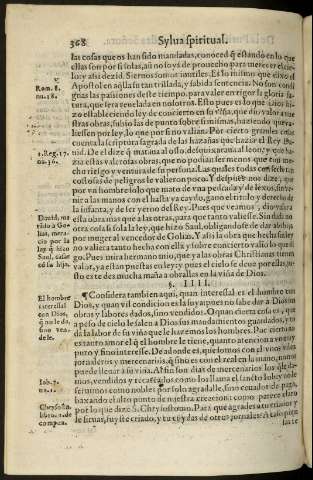 368 Sylua spiritual.
las cosas que os han sido mandadas, conoced q̃ estando en lo que
ellas son por si solas, aũ no soys de prouecho para merecer el cie-
lo: y assi dezid. Sieruos somos inutiles. Es lo mismo que dixo el
Apostol en aq̃lla su tan trillada, y sabida sentencia. No son condi-
gnas las passiones deste tiempo, para valer en rigor la gloria fu-
tura, que sera reuelada en nosotros. Esto pues es lo que Dios hi-
zo estableciendo ley de concierto en su viña, que dio valor a nue
stras obras, subiolas de punto sobre si mismas, haziendo que va-
liessen por ley, lo que por si no valian. Por cierto grandes cosas
cuenta la scriptura sagrada de las hazañas que hazia el Rey Da-
uid. De el dize q̃ mataua al osso, desquixaraua al leon: y no ha-
zia estas valerosas obras, que no podian ser menos que con mu-
cho riesgo y ventura de su persona. Las quales todas con ser tan
costosas de peligros le valieron poco. Y despues nos dize, que
por vn hombre solo que mato de vna pedrada
nir a las manos con el hasta ya caydo, gano el titulo y derecho de
la infanta, y de ser yerno del Rey. Pues que veamos, dio valor a
esta obra mas que a las otras, para que tanto valiesse. Sin duda no
otra cosa sola la ley, que hizo Saul, obligandose de dar a su hija
por muger al vencedor de Golias. Y assi la obra que hecha sin ley
no valiera tanto hecha con ella y sobre concierto valio lo que di-
go. Pues mira hermano mio, que ya las obras Christianas tienen
valor, ya estan puestas en ley: y pues el cielo se da por ellas, ju-
sto es te des mucha maña a obrallas en la viña de Dios.
§. IIII.
¶ Considera tambien aqui, quan interessal es el hombre con
Dios, y quan vil condicion es la suya: pues no sabe dar a Dios sus
obras y labores dados, sino vendidos. O quan cierta cosa es, que
a peso de cielo le salen a Dios sus mandamientos guardados, y to
da la labor de su viña que le hazemos los hombres. Pues cierto no
es tanto amor el q̃ el hombre le tiene, quanto atencion a
puro y sino interesse. De adonde es, que somos con el vnos viles
jornaleros y mercenarios, q̃ sino es con el real en la mano, nunca
puede llenar a su viña. Al fin son dias de mercenarios los que da-
mos, vendidos y recossidos como los llama el sancto Iob: y no le
seruimos como nobles por solo agradalle, sino con dar de paga,
baxando el alto punto de nuestra creacion: como parece claro
por lo que dize S. Chrysostomo. Para que agrades a tu Señor y
le siruas, fuyste criado, y tu
Rom. 8.
nu. 18.
1. Reg. 17.
nu. 36.
Dauid, ma
tãdo a Go-
lias, mere-
cio por la
ley q̃ hizo
Saul, casar
cõ su hija.
El hombre
interessal
con Dios,
q̃ no le da,
sino ven-
dele.
Iob. 7.
nu. 1.
Chrysost.